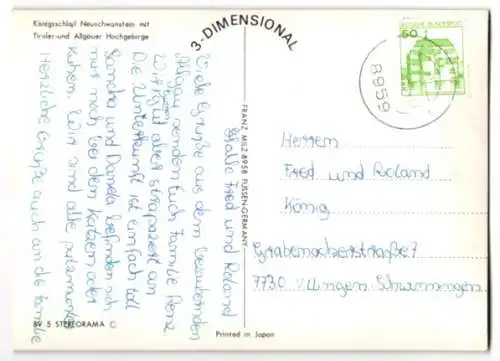 Königsschloß Neuschwanstein mit
Tiroler-und Allgäuer Hochgebirge
3-DIMENSIONAL
FRANZ MILZ·8958 FÜSSEN·GERMANY
Hallo Fred und Roland
Viele Grüße aus dem bezaubernden
Allgäu senden Euch Familie Renz.
Wir gut aber strapaziert an
Die Unterkunft ist einfach toll
Sandra und Daniela befinden sich
nur noch bei den Katzen oder
Kühen. Wir sind alle putzmunter
Herzliche Grüße auch an die Familie
60
DEUTSCHE BUNDESPOST
8959
Herren
Fred und Roland
König
Grabenäckerstraße 7
7730 Villingen Schwenningen
89 5 STEREORAMA ©
Printed in Japan